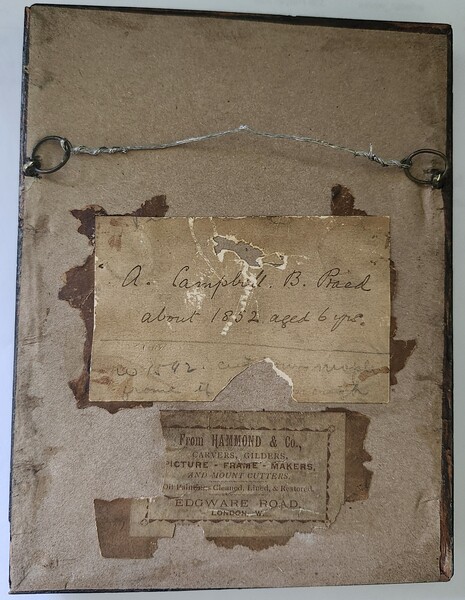 A. Campbell. B. Praed
about 1852 aged 6 yrs.
1542.
From HAMMOND & Co.,
CARVERS, GILDERS,
PICTURE - FRAME - MAKERS,
AND MOUNT CUTTERS
Oil Paintings Cleaned, Lined, & Restored.
EDGWARE ROAD,
LONDON, W.